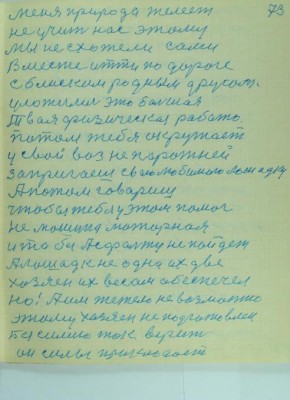 73
меня природа жалеет
не учит нас этому
мы не схожели сами
Вместе итти по дороге
с блиским родным другом.
уложили это бочная
Твая физическая работа.
потом тебя окружает
у свой воз не порожней
Запригаеш своюлюбимого лошадку
А потом товарищ
чтобы тебе у этом помог
не машина моторная
и та би Асфалту не пойдет
А лошадк не одна их две
хозяен их весом обеспечел
но! Аим тежело невозможно
этому хозяен не подготовлен
ток верит
он силы прикладает